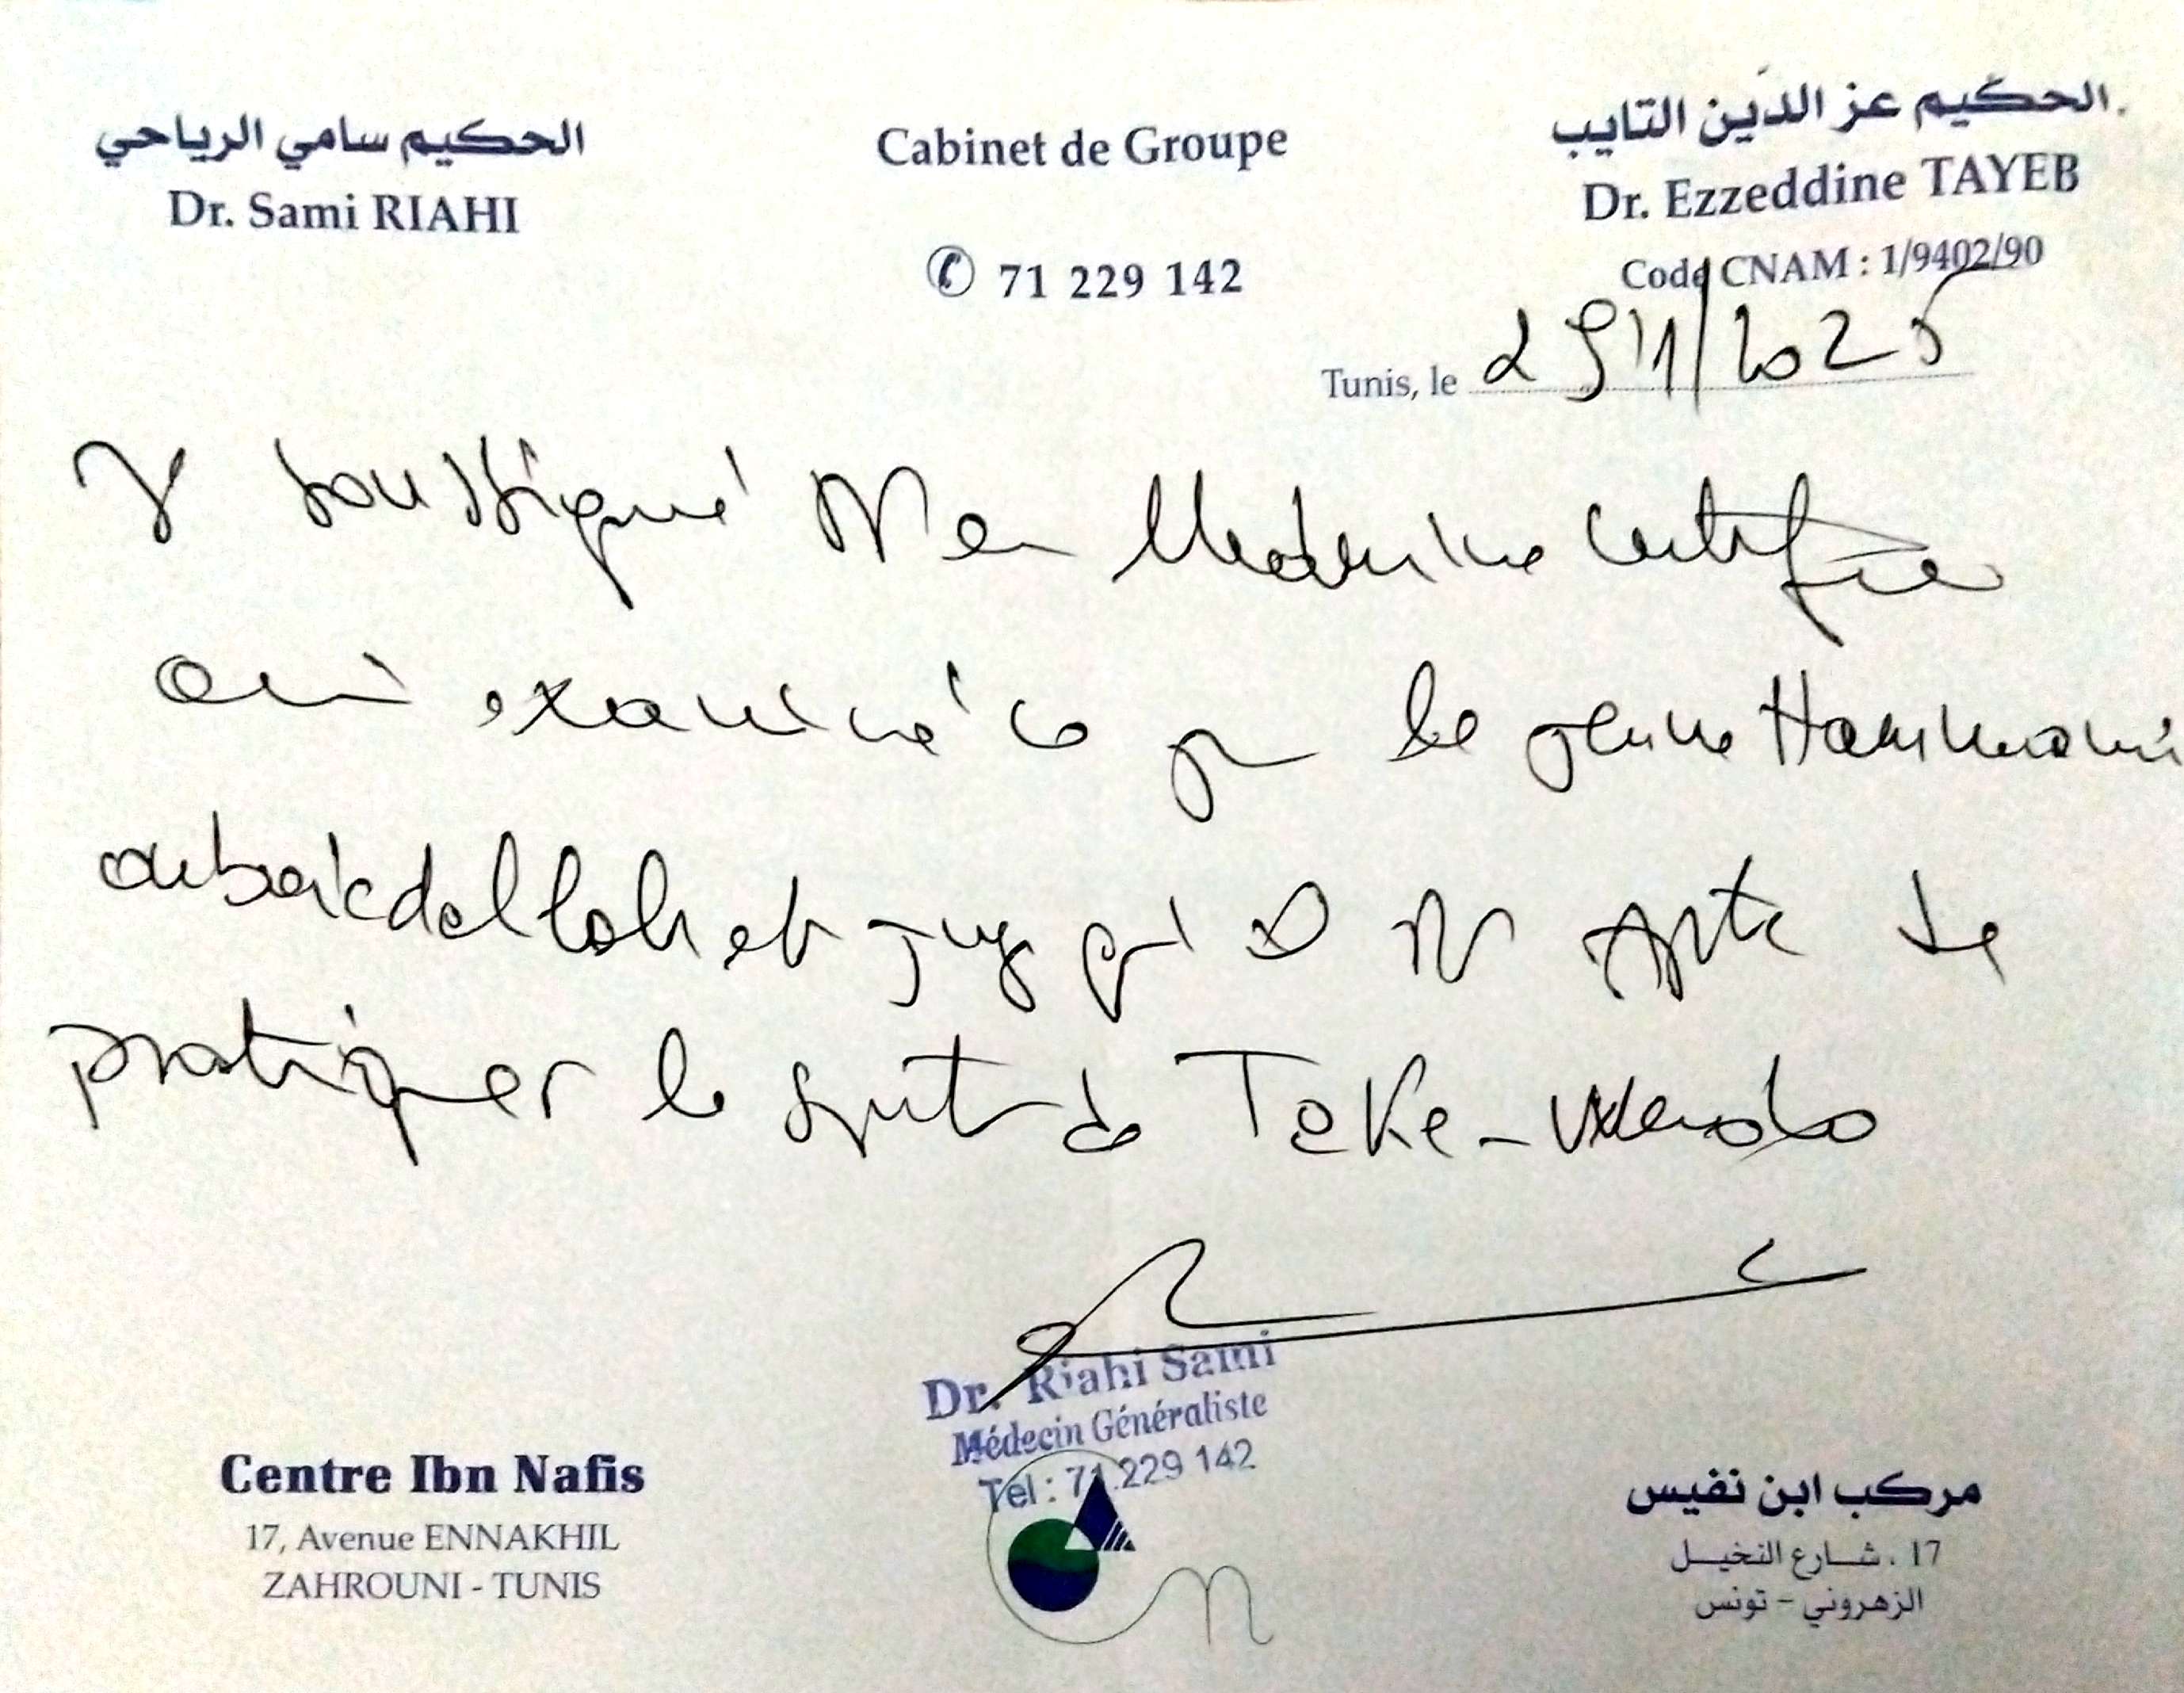 الحكيم سامي الرياحي
Dr. Sami RIAHI
Cabinet de Groupe
71 229 142
الحكيم عز الدّين التايب
Dr. Ezzeddine TAYEB
Code CNAM : 1/9402/90
Tunis, le 29/1/2025
Je soussigné Dr en Medecine certifie
avoir examiné ce jour le jeune Hammami
et juge qu'il est Apte de
pratiquer le sport de Teke-wendo
Dr. Riahi Sami
Médecin Généraliste
Tel : 71 229 142
Centre Ibn Nafis
17, Avenue ENNAKHIL
ZAHROUNI - TUNIS
مركب ابن نفيس
17 . شارع النخيل
الزهروني - تونس